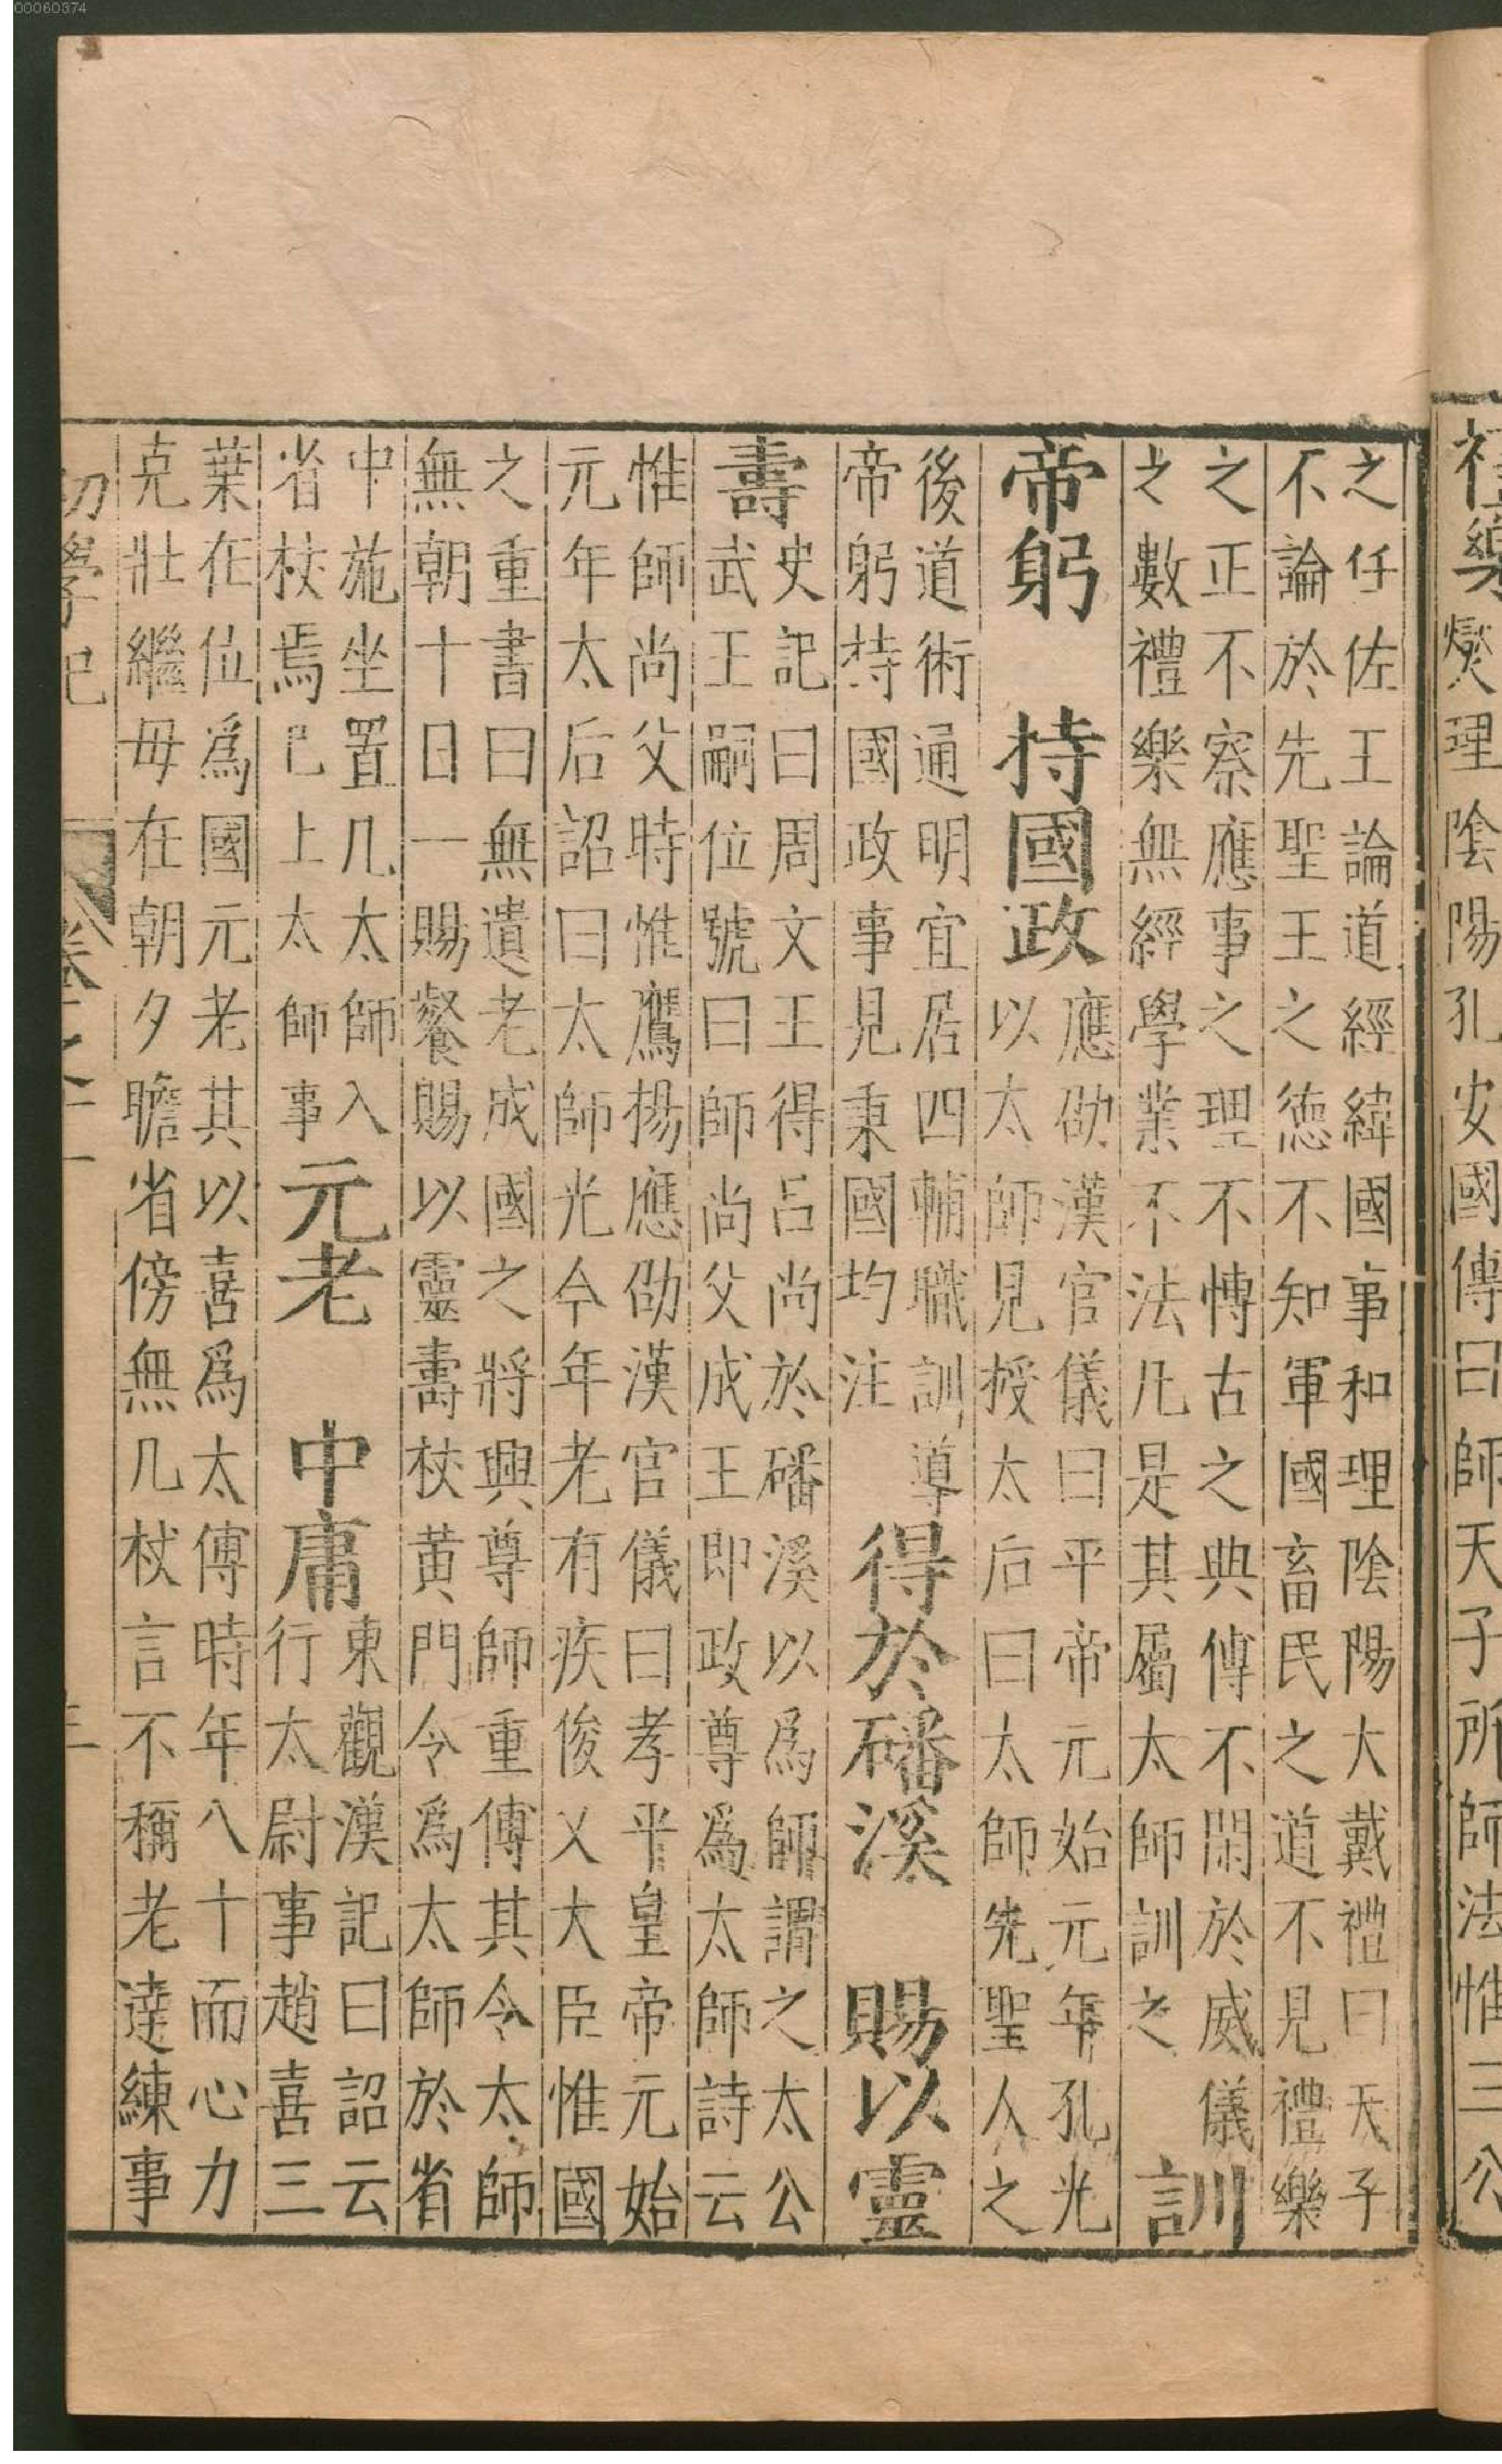 00060374
禮樂燮理陰陽孔安國傳曰師天子所師法惟三公
之任佐王論道經緯國事和理陰陽大戴禮曰天子
不論於先聖王之德不知軍國畜民之道不見禮樂
之正不察應事之理不愽古之典傳不閑於威儀
之數禮樂無經學業不法凡是其屬太師訓之
訓
帝躬 持國政
應劭漢官儀曰平帝元始元年孔光
以太師見授太后曰太師先聖人之
後道術通明宜居四輔職訓導
帝躬持國政事見秉國均注
得於磻溪 賜以靈
壽
史記曰周文王得呂尚於磻溪以為師謂之太公
武王嗣位號曰師尚父成王即政尊為太師詩云
惟師尚父時惟鷹揚應劭漢官儀曰孝平皇帝元始
元年太后詔曰太師光今年老有疾俊乂大臣惟國
之重書曰無遺老成國之將興尊師重傅其令太師
無朝十日一賜餐賜以靈壽杖黃門令為太師於省
中施坐置几太師入
省杖焉已上太師事
元老 中庸
東觀漢記曰詔云
行太尉事趙喜三
葉在位爲國元老其以喜爲太傅時年八十而心力
克壯繼母在朝夕瞻省傍無几杖言不稱老達練事
初學記 卷十一 三